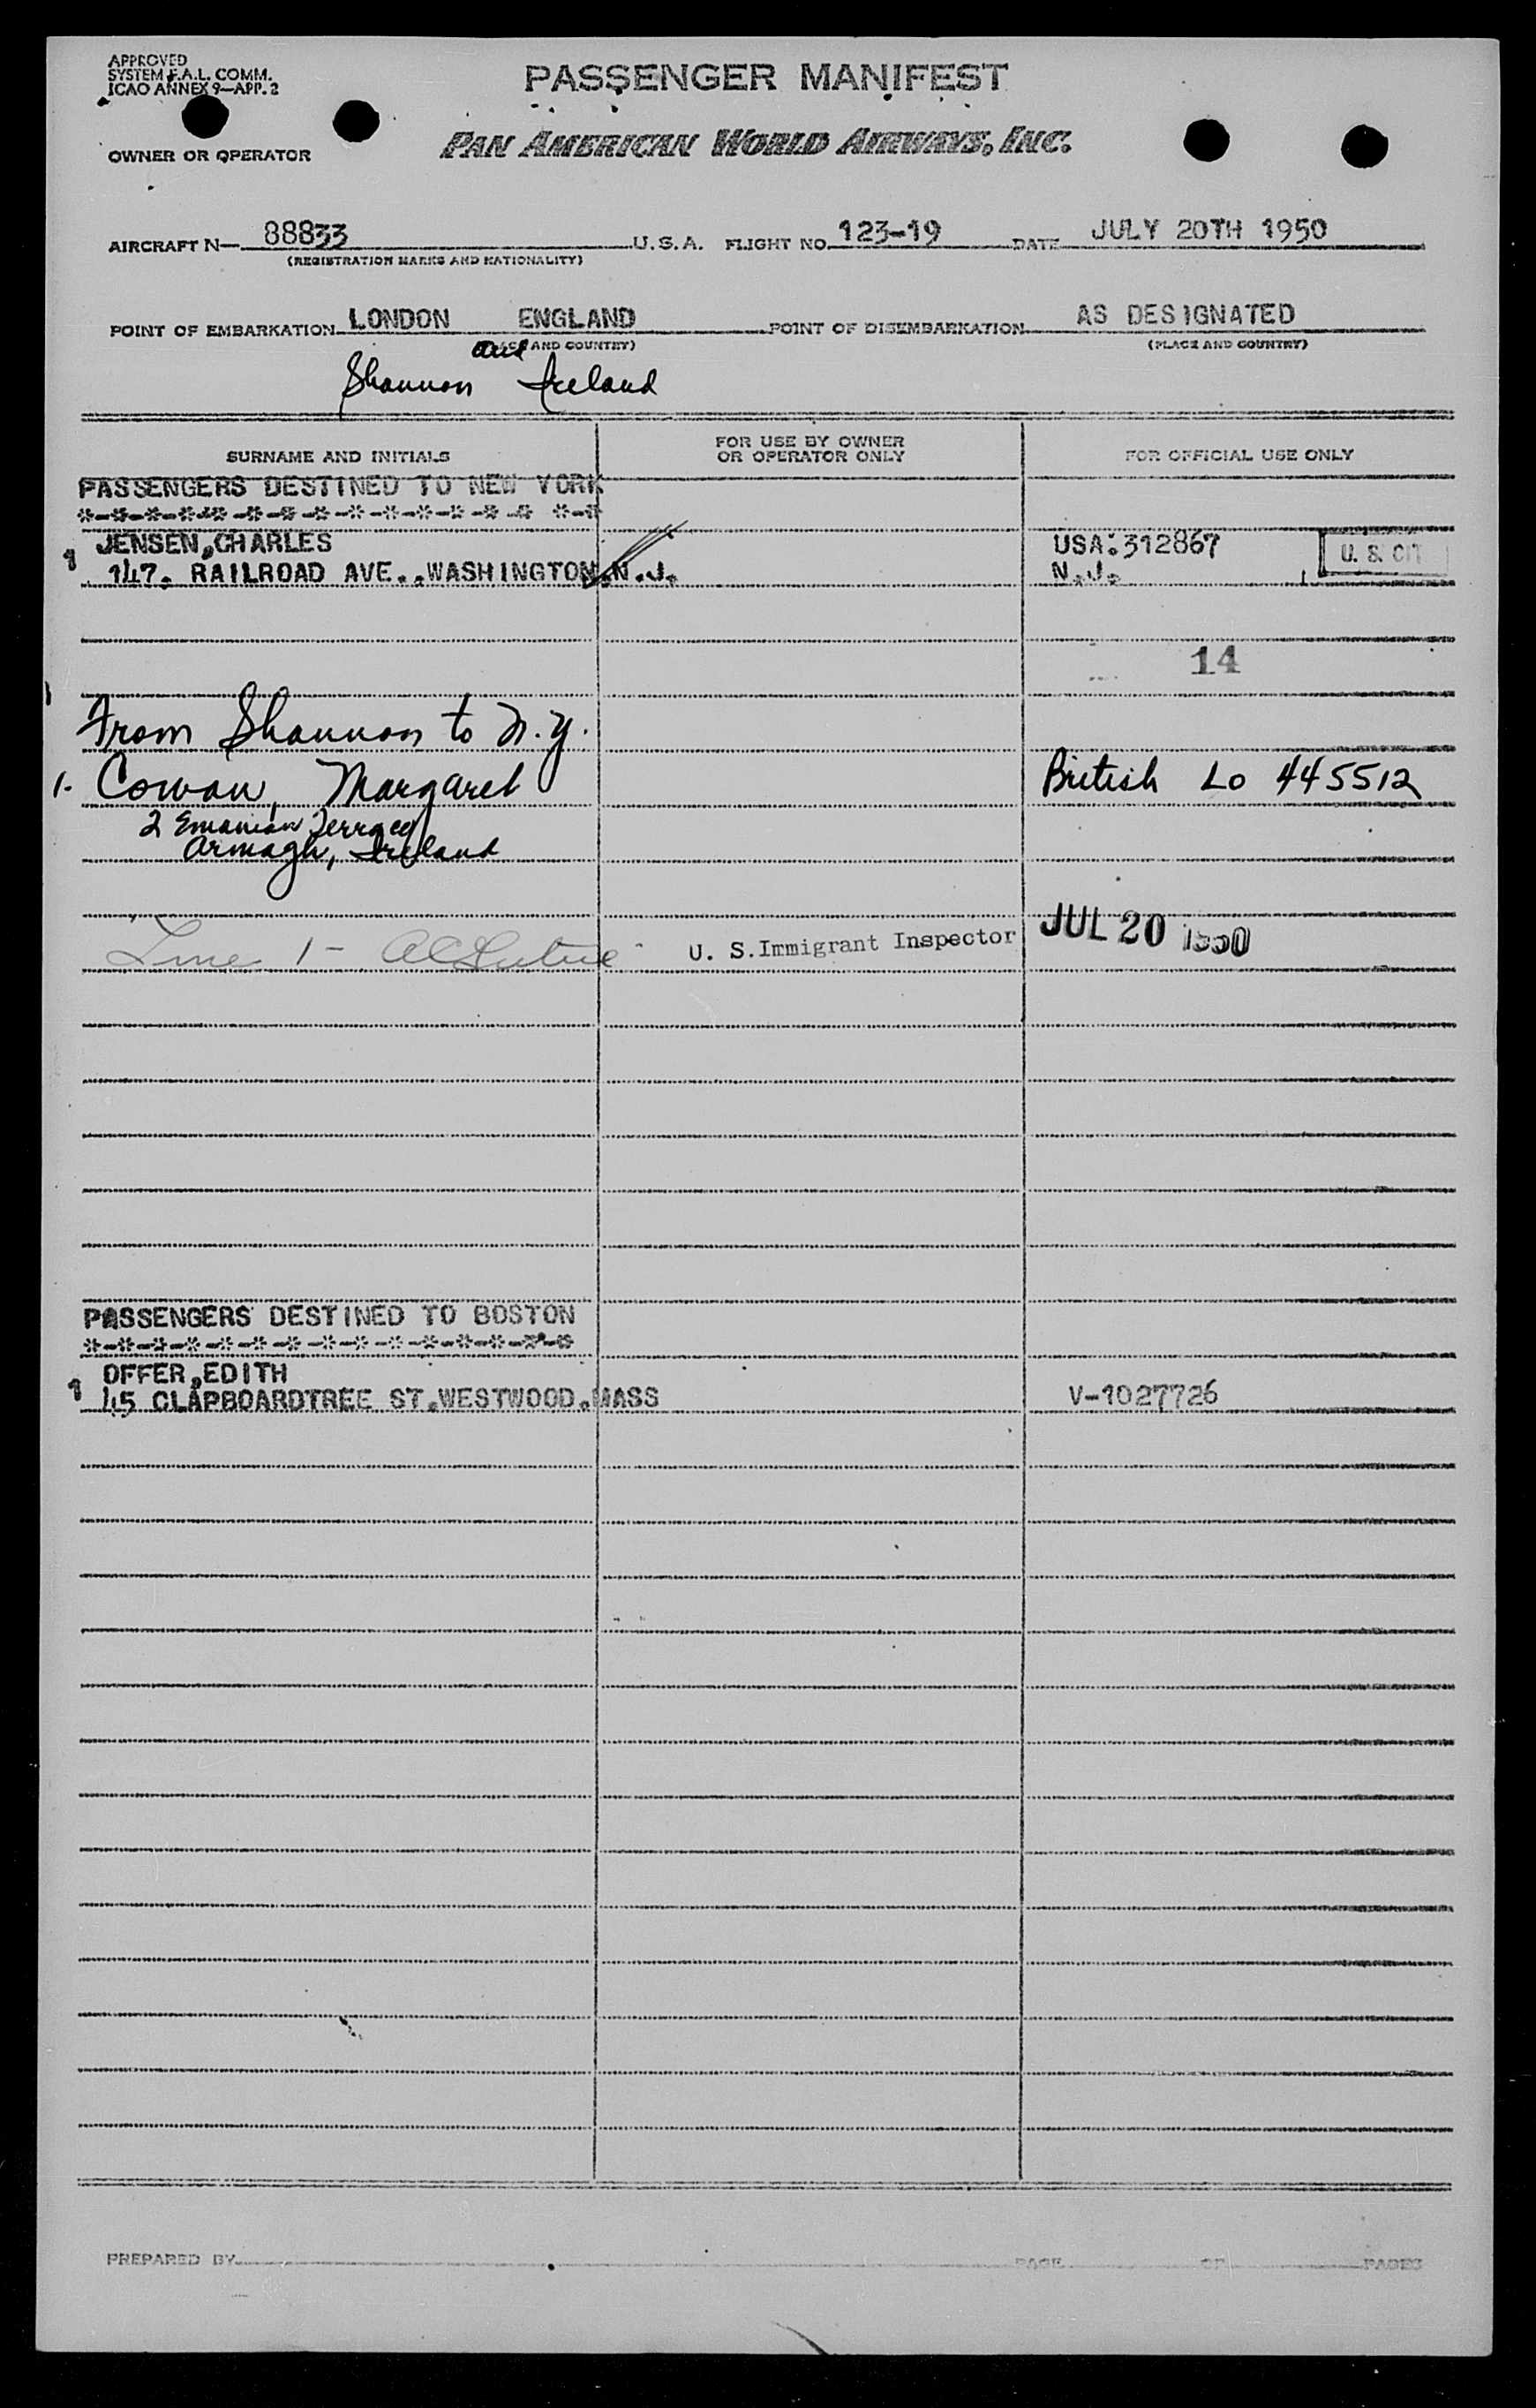 APPROVED
SYSTEM F.A.L. COMM.
ICAO ANNEX 9—APP. 2
PASSENGER MANIFEST
OWNER OR OPERATOR
PAN AMERICAN WORLD AIRWAYS, INC.
AIRCRAFT N— 88833 U.S.A. FLIGHT NO. 123-19 DATE JULY 20TH 1950
(REGISTRATION MARKS AND NATIONALITY)
POINT OF EMBARKATION LONDON ENGLAND POINT OF DISEMBARKATION AS DESIGNATED
(PLACE AND COUNTRY) (PLACE AND COUNTRY)
and
Shannon Ireland
SURNAME AND INITIALS FOR USE BY OWNER OR OPERATOR ONLY FOR OFFICIAL USE ONLY
PASSENGERS DESTINED TO NEW YORK
*-*-*-*-*-*-*-*-*-*-*-*-*-* *-*
JENSEN,CHARLES USA:312867 U. S. CIT
1 147. RAILROAD AVE..WASHINGTON.N.J. N.J.
14
From Shannon to N.Y.
1. Cowan, Margaret British Lo 445512
2 Emanian Terrace
Armagh, Ireland
Line 1- U. S. Immigrant Inspector JUL 20 1950
PASSENGERS DESTINED TO BOSTON
*-*-*-*-*-*-*-*-*-*-*-*-*-*-*
OFFER,EDITH
1 45 CLAPBOARDTREE ST.WESTWOOD.MASS V-1027726
PREPARED BY PAGE OF PAGES